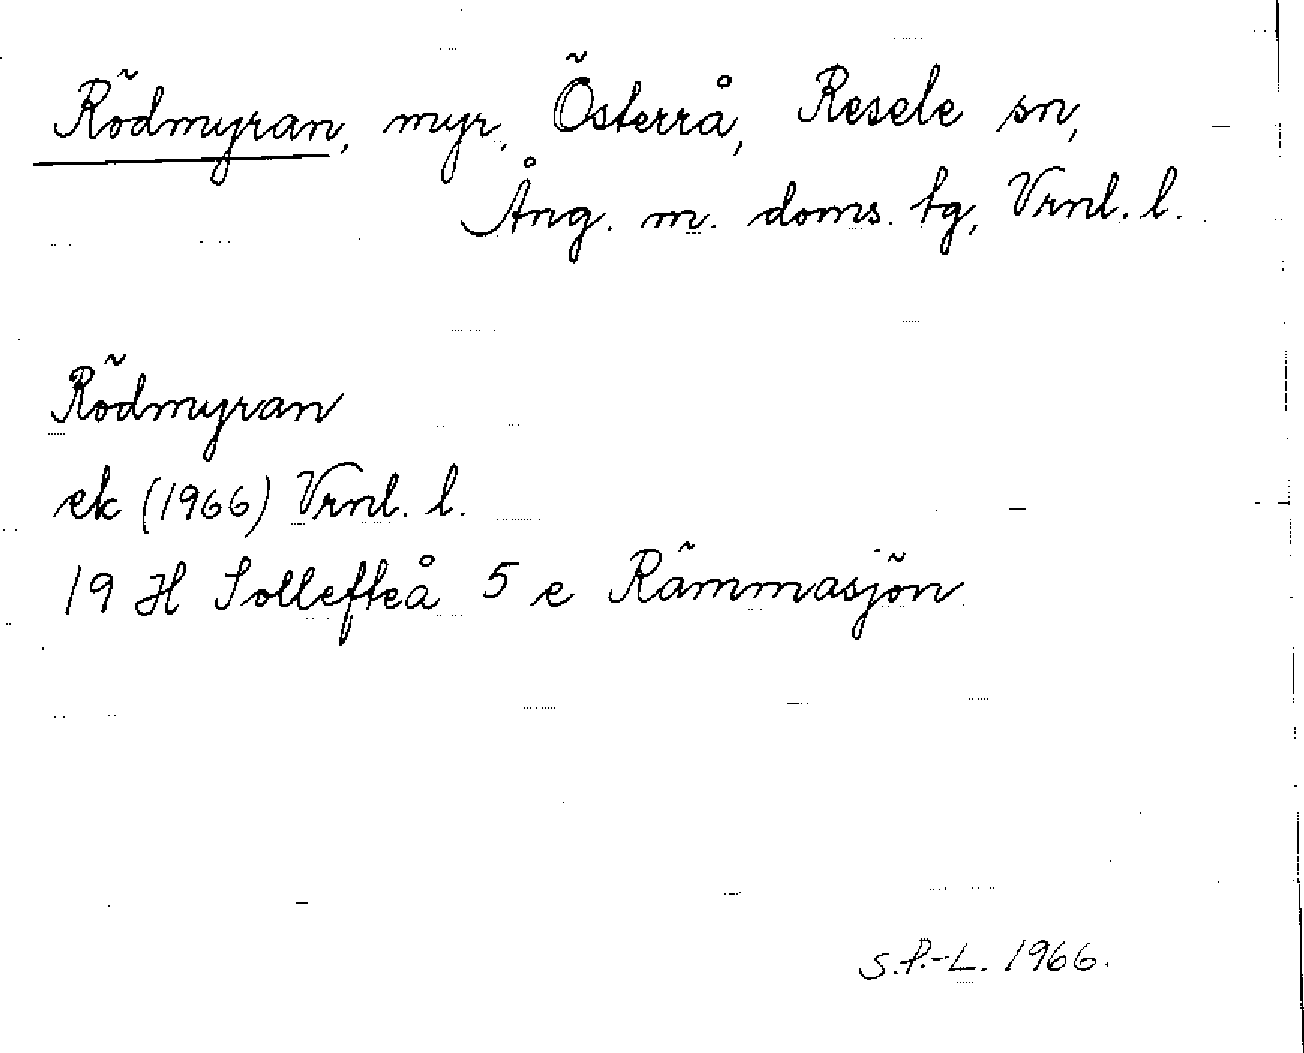 Rödmyran, myr, Österrå, Resele sn,
Ång. m. doms. tg, Vrnl. l.
Rödmyran
ek (1966) Vrnl. l.
19 H Sollefteå 5 e Rämmasjön
S.P.-L. 1966.